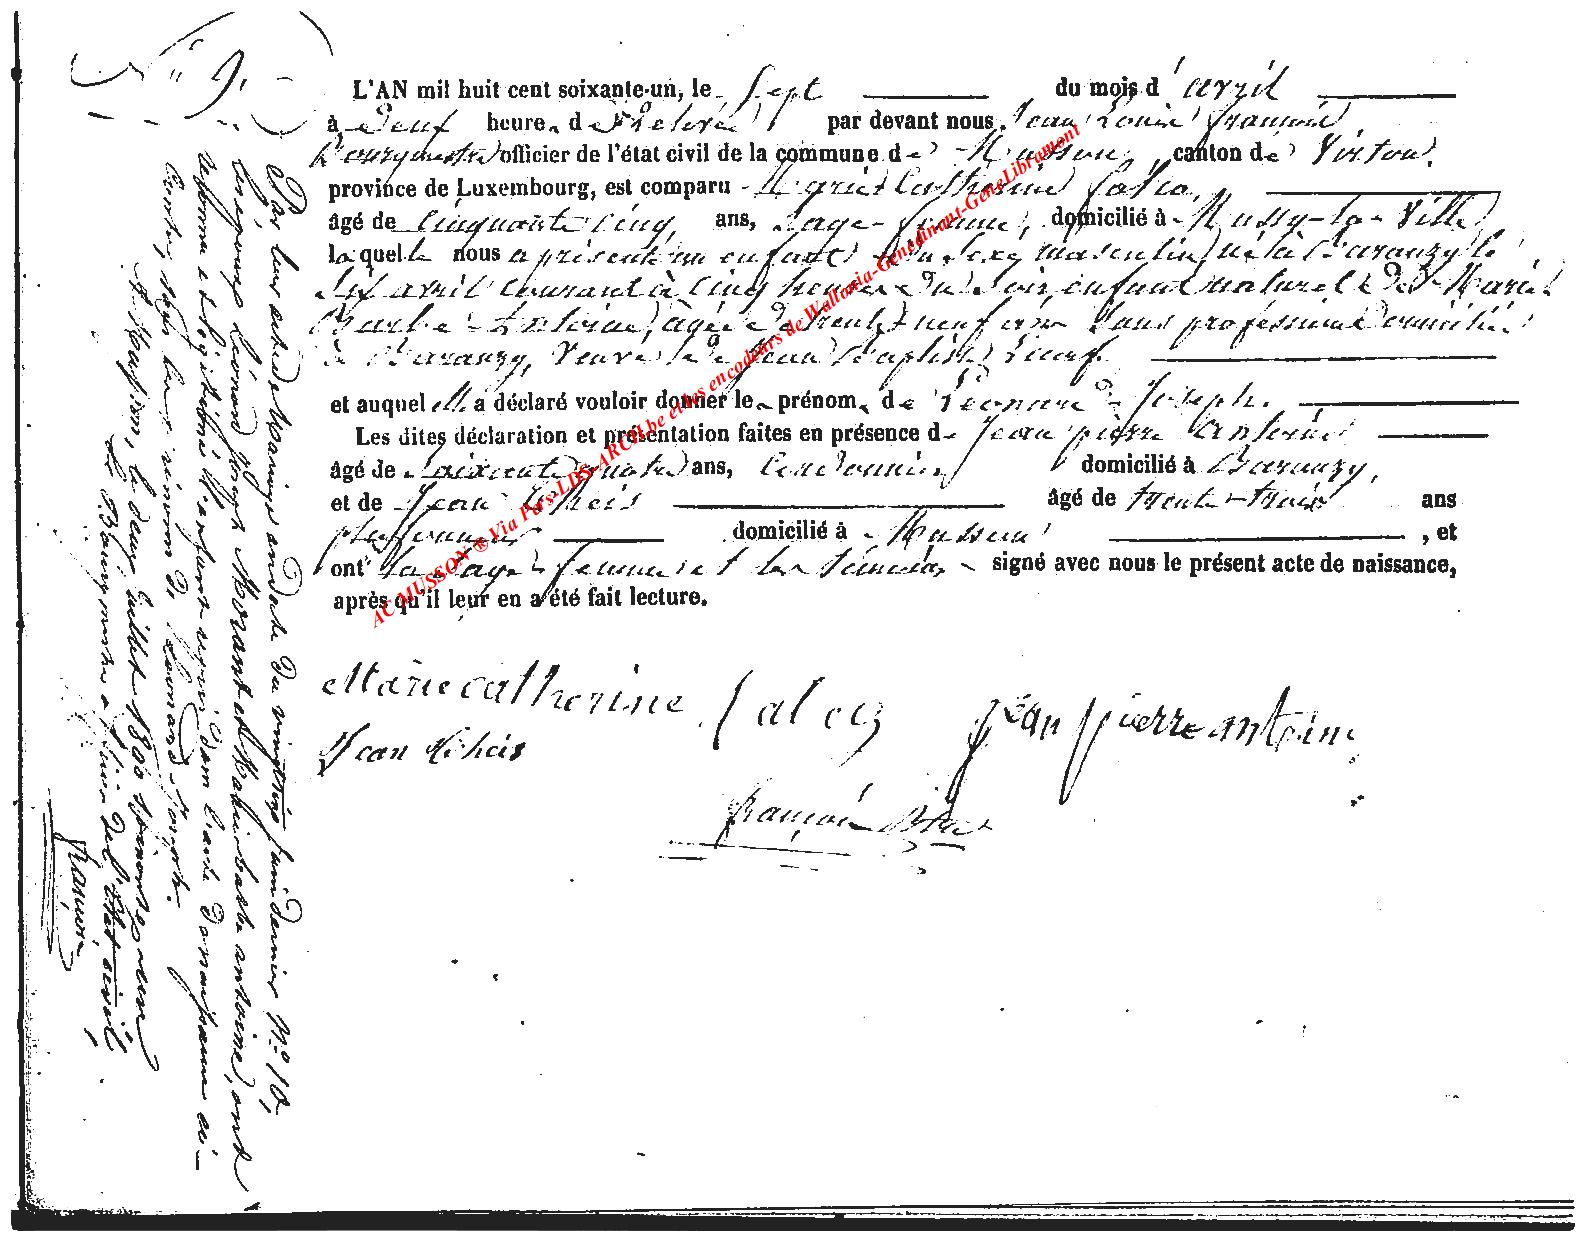 N° 9.
L'AN mil huit cent soixante-un, le sept du mois d'avril
à neuf heures de relevé par devant nous Jean Louis François
Bourgmestre officier de l'état civil de la commune de Musson, canton de Virton,
province de Luxembourg, est comparu Marie Catherine
âgé de cinquante cinq ans, sage-femme, domicilié à Mussy-la-Ville
laquelle nous a présenté un enfant du sexe masculin, né à Baranzy le
six avril courant à cinq heures du soir, enfant naturel de Marie
Barbe Antoine, agée de trente-neuf ans sans profession domiciliée
à Baranzy, veuve de Jean Baptiste
et auquel elle a déclaré vouloir donner le prénom de Léonard Joseph.
Les dites déclaration et présentation faites en présence de Jean pierre Antoine
âgé de soixante quatre ans, cordonnier domicilié à Baranzy,
et de Jean âgé de trente-trois ans
domicilié à Musson, et
ont la sage-femme et les témoins signé avec nous le présent acte de naissance,
après qu'il leur en a été fait lecture.
Marie catherine
Jean pierre antoine
Jean
françois
Par leur acte de Mariage en date du vingt juin dernier N° 10,
Léonard Joseph Morant et Marie barbe antoine, ont
reconnu et légitimé l'enfant repris dans l'acte de naissance ci-
contre, sous les prénoms de Léonard-Joseph.
A Musson, le deux juillet 18
Le Bourgmestre officier de l'état civil,
françois
AC MUSSON ® Via Pars-LDS-ARCH.be et les encodeurs de Wallonia-Genedinant-GeneLibramont